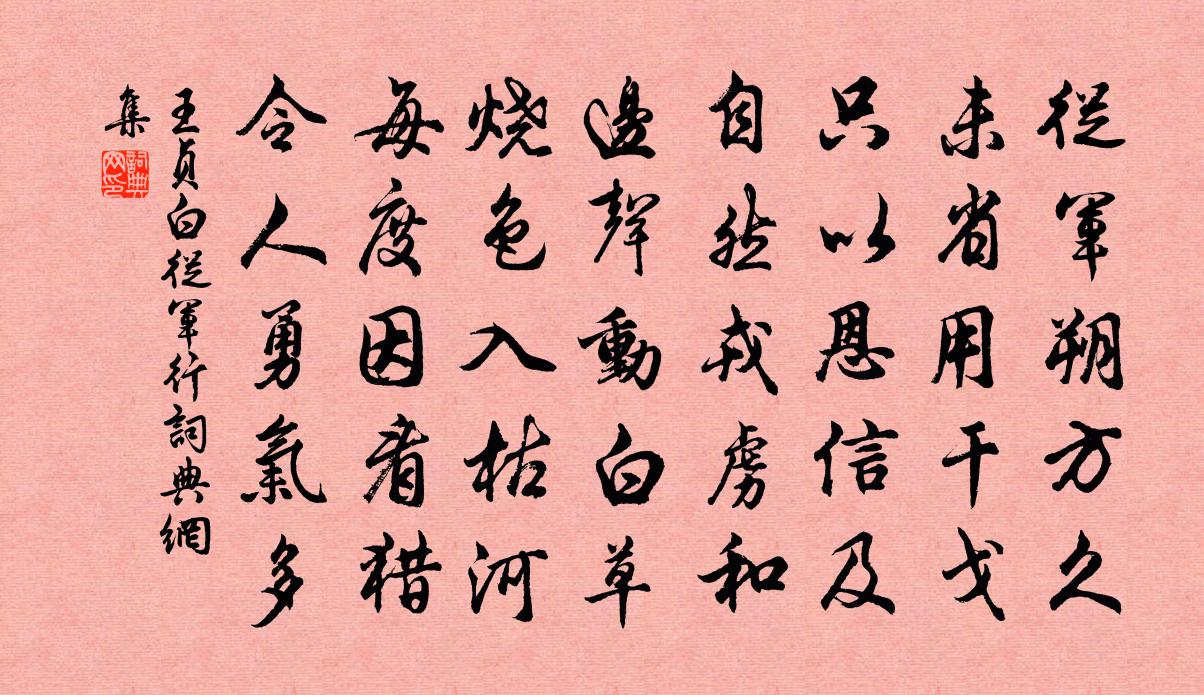 從軍朔方久
未省用干戈
只以恩信及
自然戎虜和
邊聲動白草
燒色入枯河
每度因看猎
令人勇氣多
王貞白從軍行詞典網
集
詞典
网印